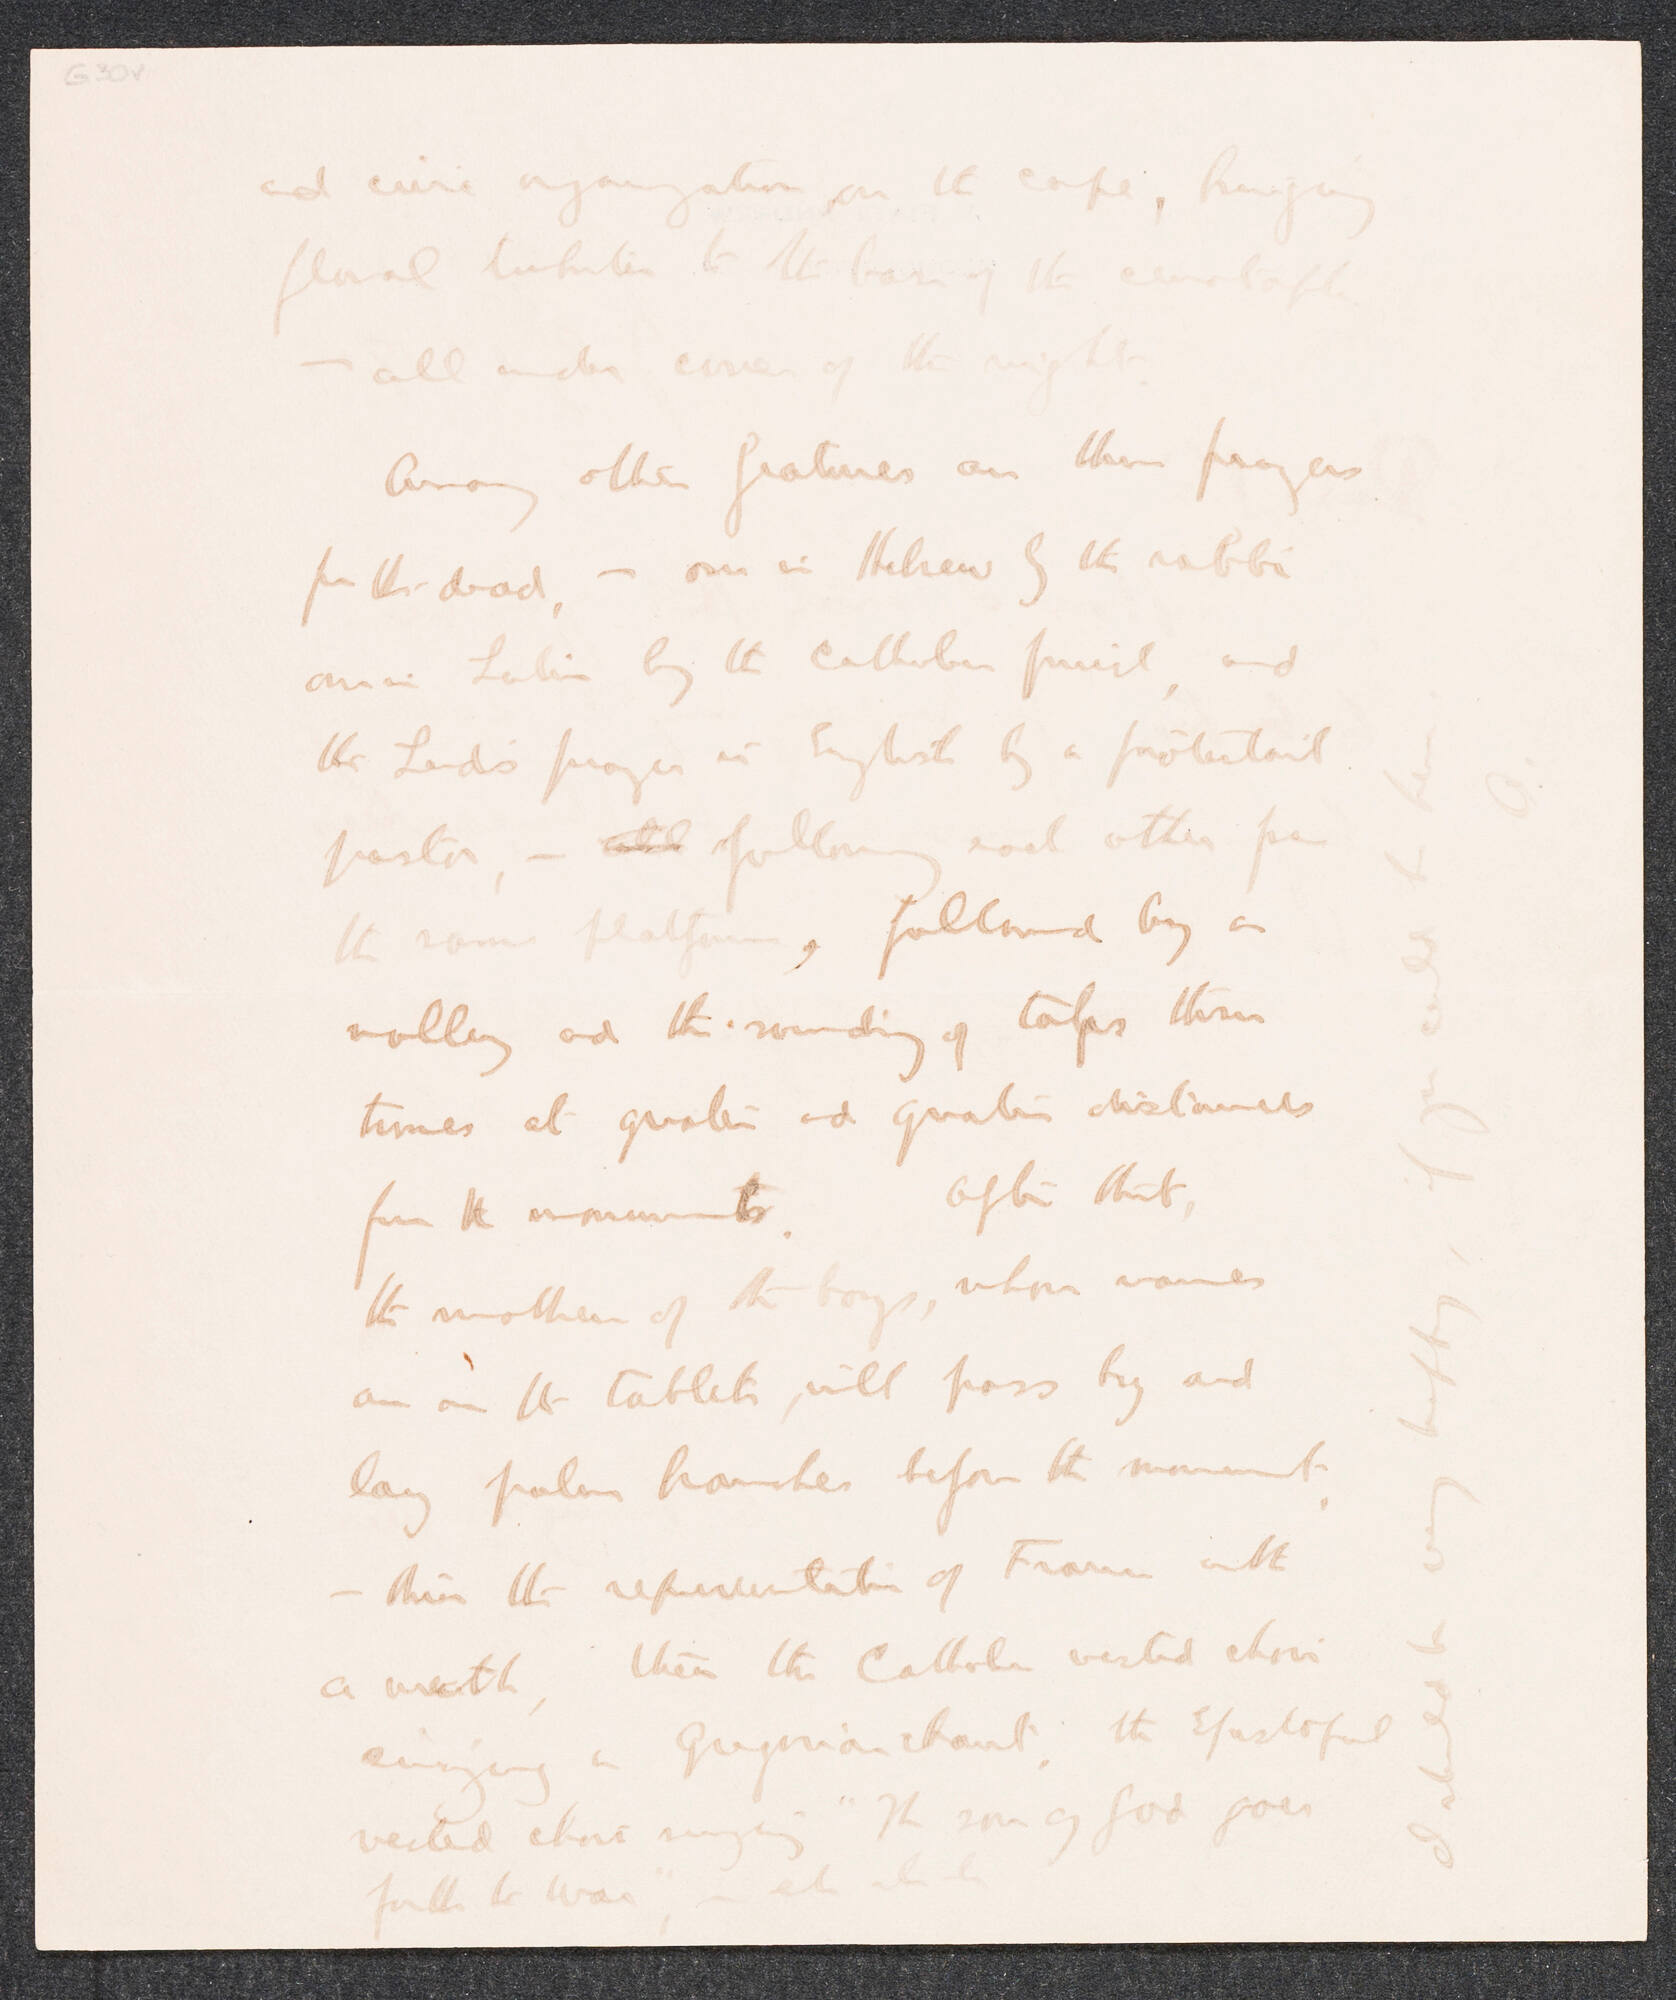 G30v
and civic organization on the cape, bringing
floral tributes to the base of the cenotaph
— all under cover of the night.
Among other features are three prayers
for the dead, — one in Hebrew by the rabbi
one in Latin by the Catholic priest, and
the Lord's prayer in English by a protestant
pastor, — all following each other from
the same platform, followed by a
volley and the sounding of taps three
times at greater and greater distances
from the monument. After that,
the mothers of the boys, whose names
are on the tablets, will pass by and
lay palm branches before the monument,
— then the representative of France with
a wreath, then the Catholic vested choir
singing a Gregorian chant, the Episcopal
vested choir singing "The son of God goes
forth to war",
I should be very happy, if you could be here.
A.